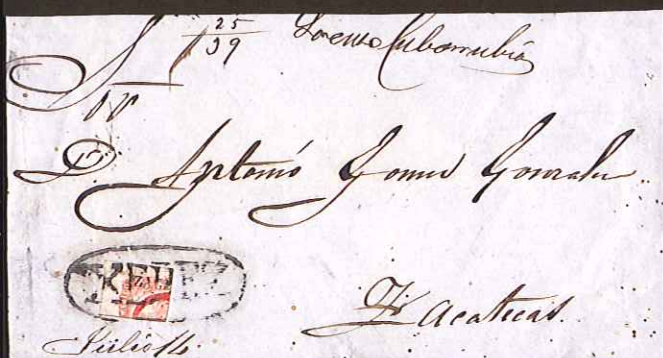 S 25
39 Lorenzo Cubarrubia
D. Antonio Gomez Gonzalez
XEREZ
Zacatecas.
Julio 14.